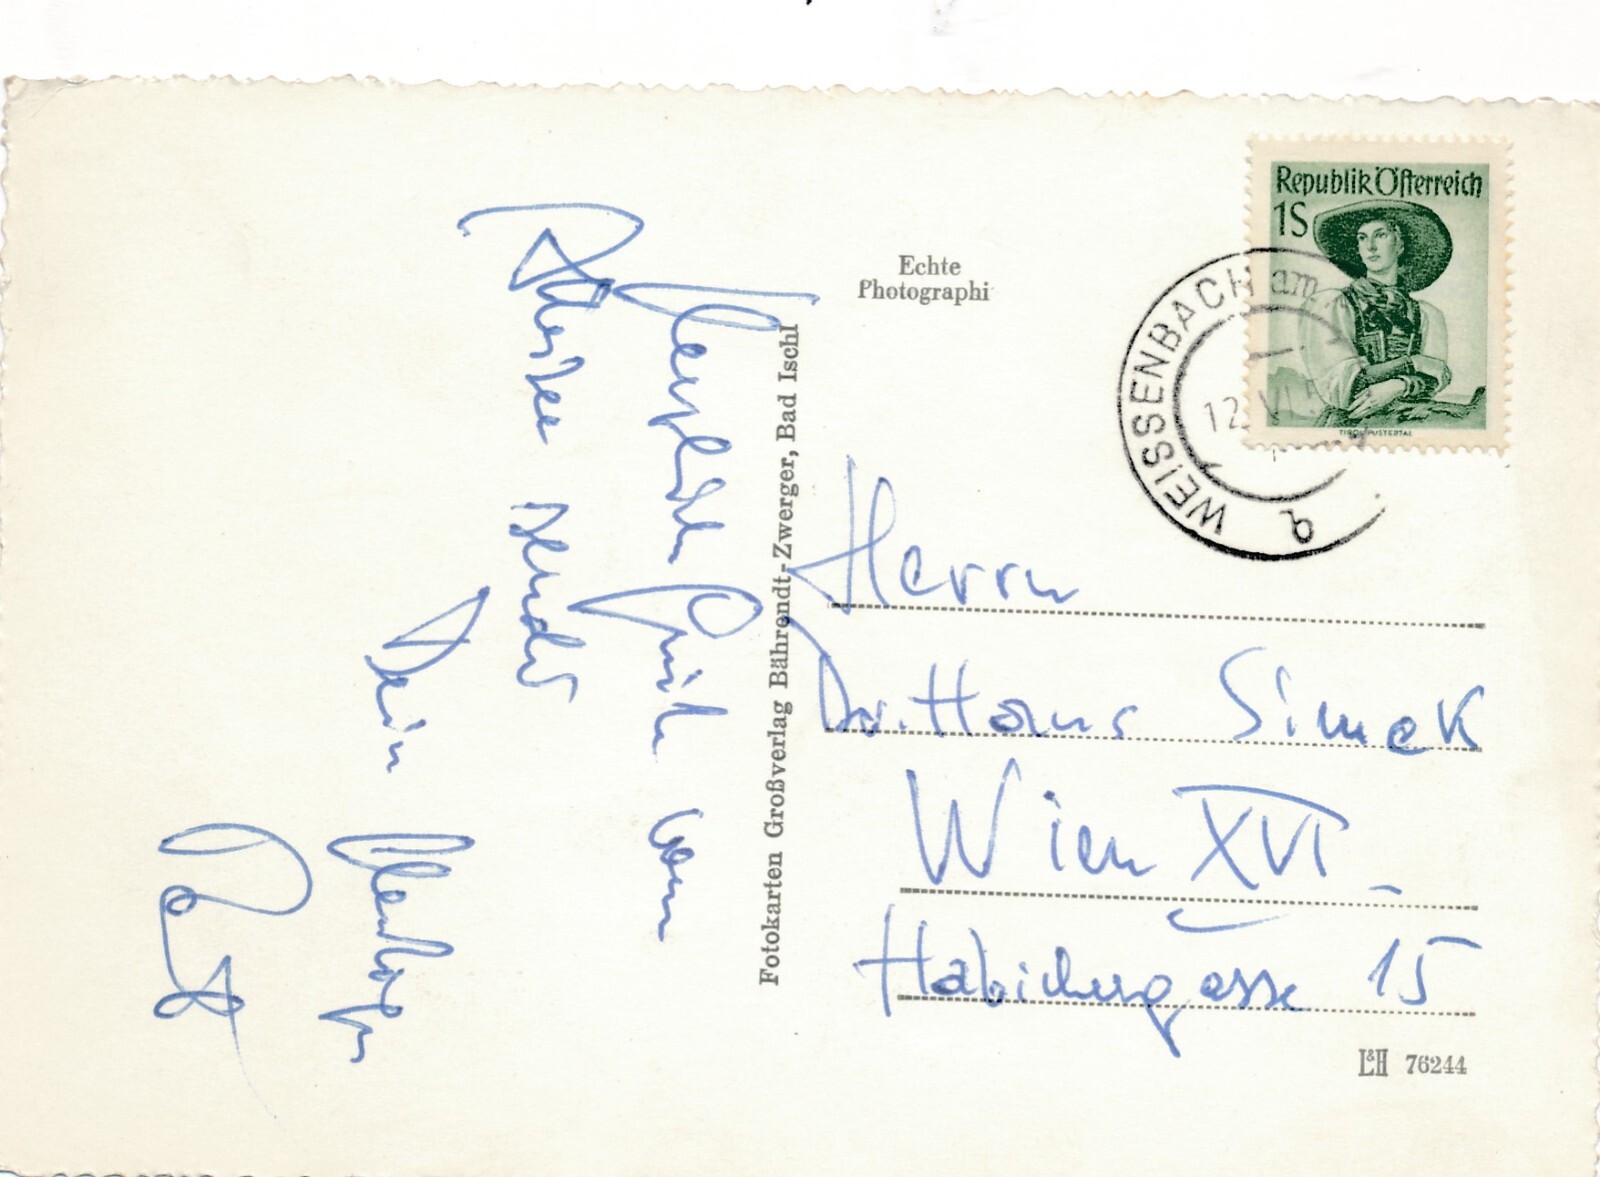 Herzliche Grüße vom
Attersee sendet
Dein
Echte
Photographi
Fotokarten Großverlag Bährendt-Zwerger, Bad Ischl
Republik Österreich
1S
TIROL PUSTERTAL
WEISSENBACH am
12. VI. 5
q
Herrn
Dr. Hans Simek
Wien XVI
Habichergasse 15
L&H 76244